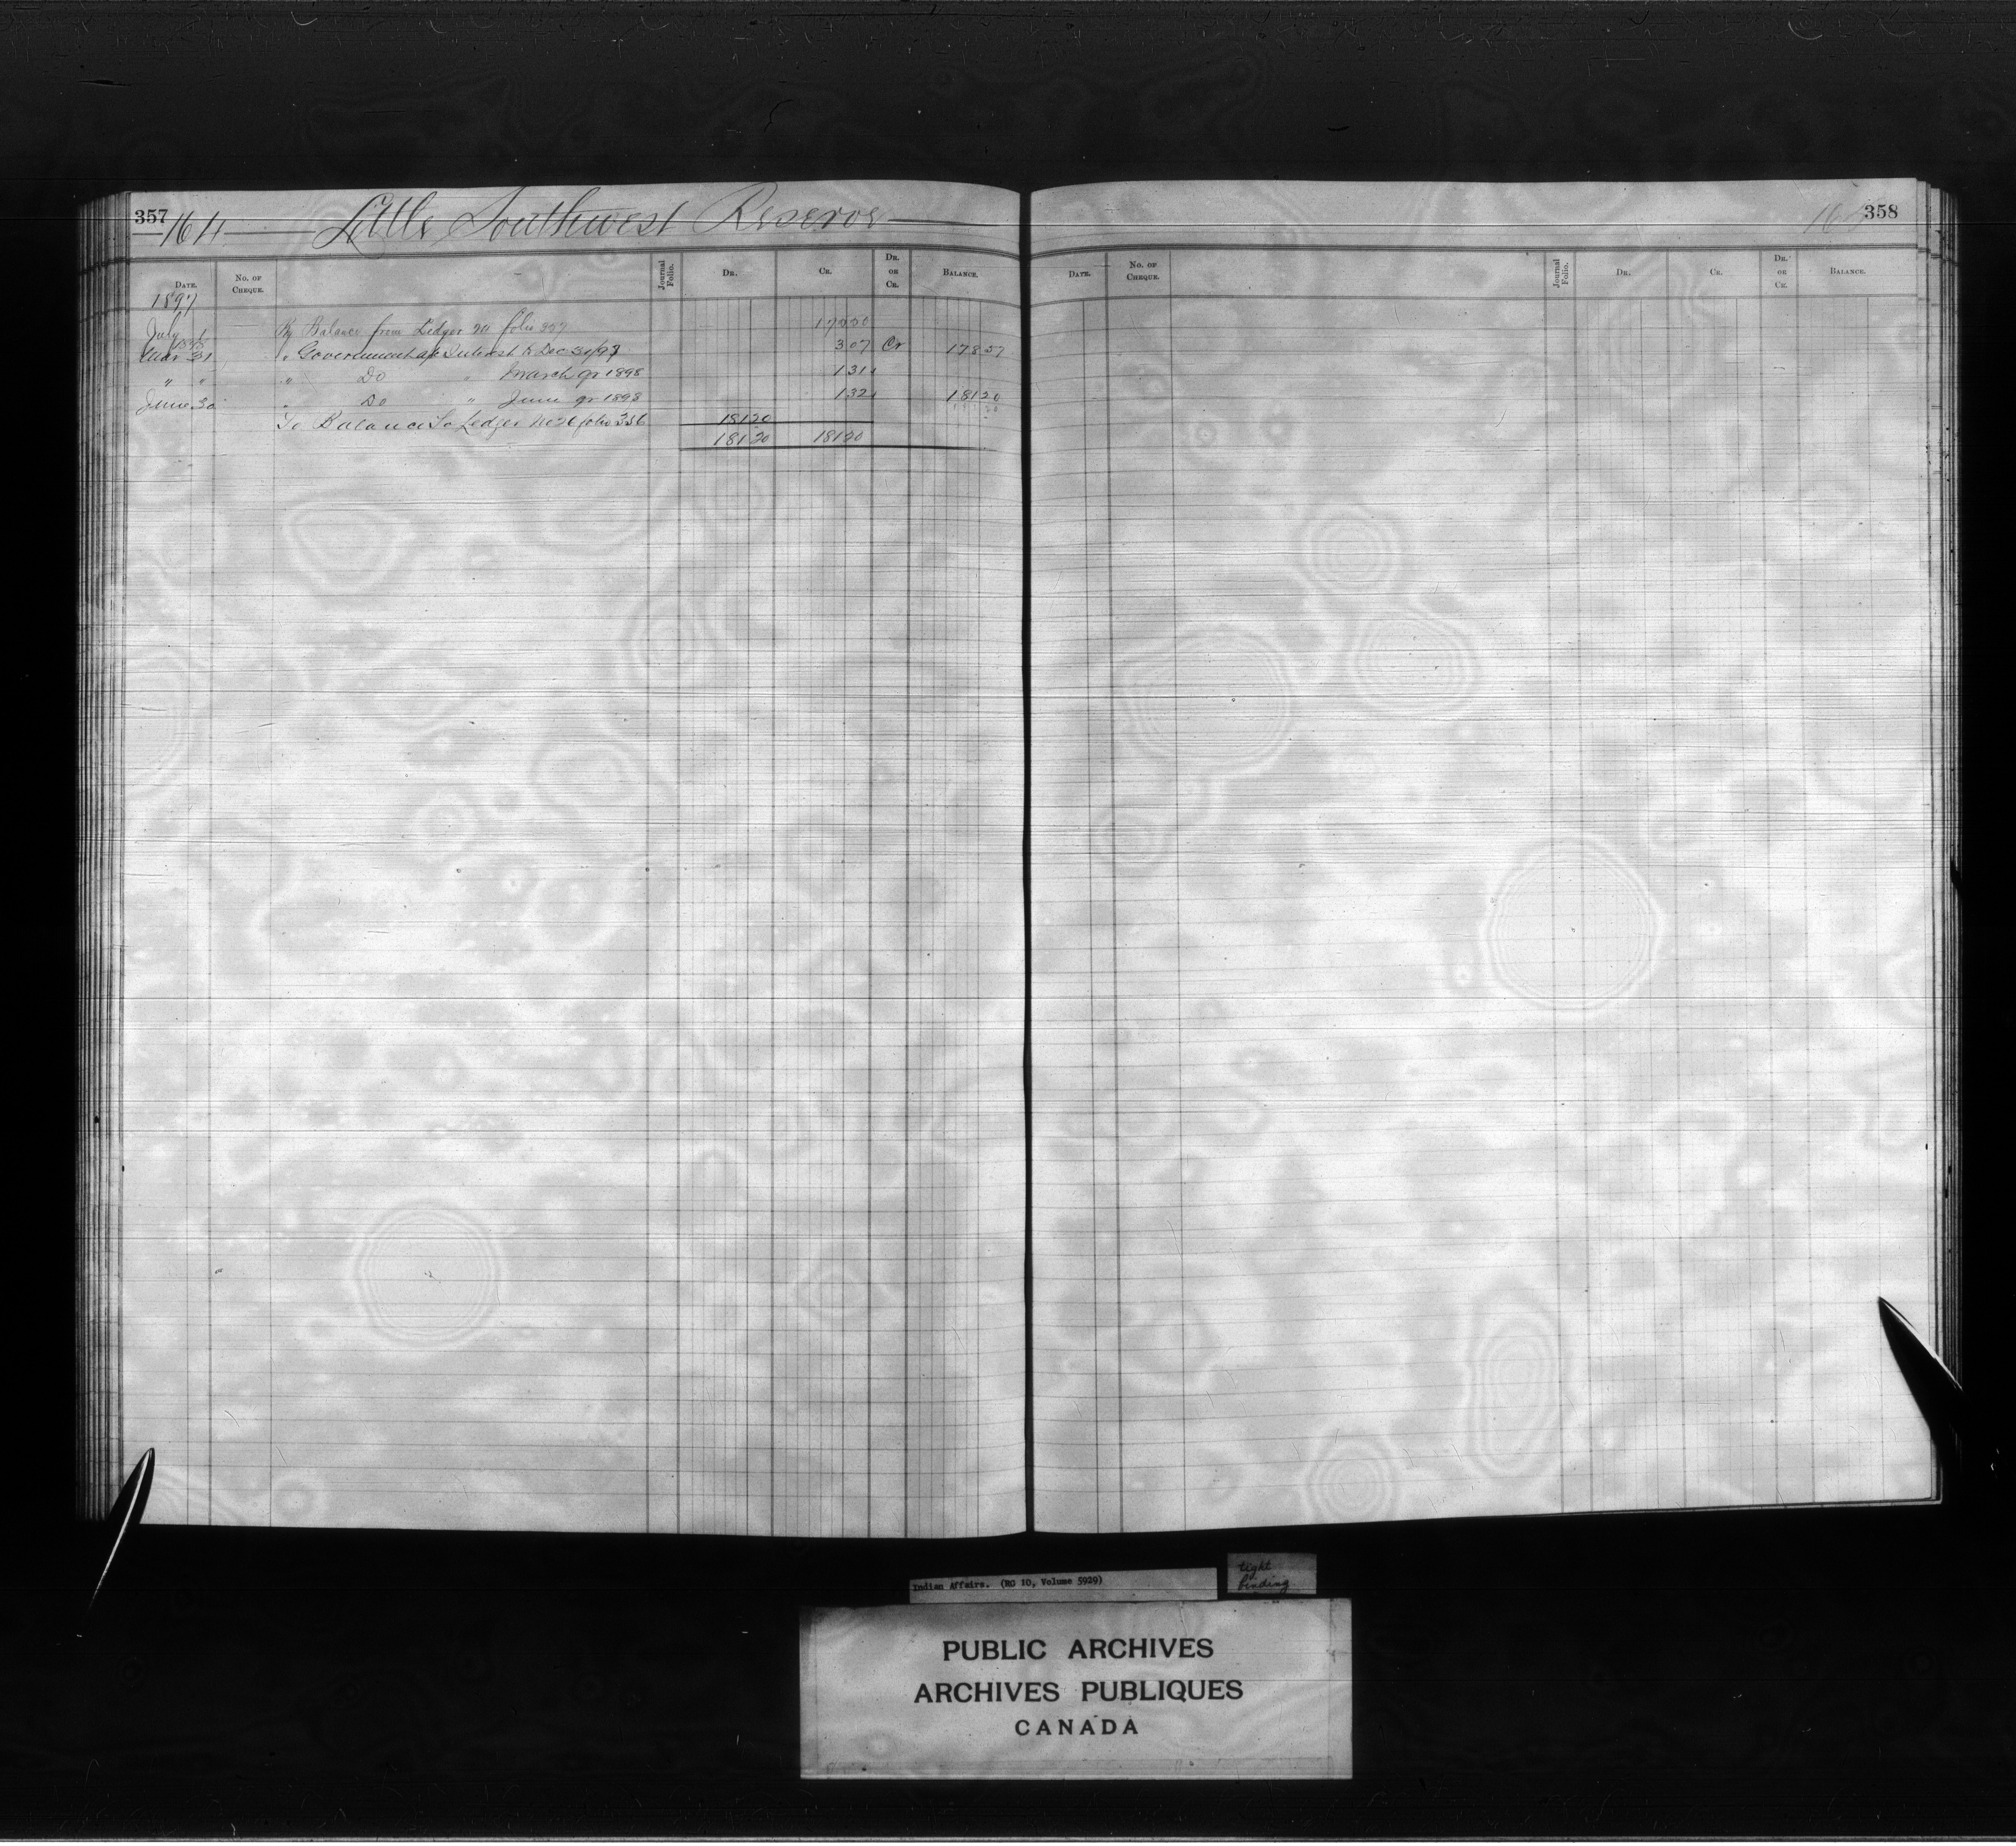 357 164 Little Southwest Reserve
DATE. No. OF CHEQUE. Journal Folio. DR. CR. DR. OR CR. BALANCE.
1897
July 1 By Balance from Ledger folio 17550
1898
Mar 31 " Government a/c Interest to Dec 31/97 307 Cr 17857
" " " Do " March qr 1898 131
June 30 " Do " June qr 1898 132 18120
To Balance To Ledger No 26 folio 356 18120
18120 18120
358
DATE. No. OF CHEQUE. Journal Folio. DR. CR. DR. OR CR. BALANCE.
Indian Affairs. (RG 10, Volume 5929)
tight
binding
PUBLIC ARCHIVES
ARCHIVES PUBLIQUES
CANADA